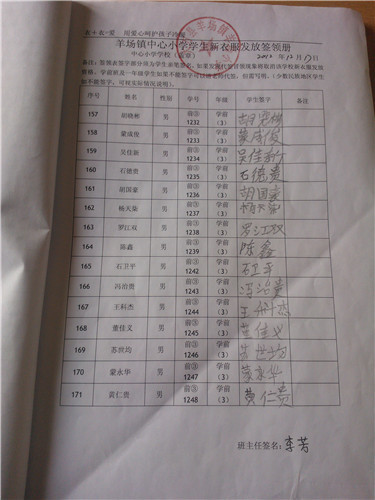 羊场镇中心小学学生新衣服发放签领册
中心小学学校（盖章） 2012年12月17日
序号 姓名 性别 学号 年级 学生签字 备注
157 胡晓彬 男 前③ 1232 学前（3）
158 蒙成俊 男 前③ 1234 学前（3） 蒙成俊
159 吴佳新 男 前③ 1235 学前（3） 吴佳新
160 石德贵 男 前③ 1236 学前（3） 石德贵
161 胡国豪 男 前③ 学前（3） 胡国豪
162 杨天荣 男 前③ 1237 学前（3）
163 罗江双 男 前③ 1238 学前（3） 罗江双
164 陈鑫 男 前③ 1239 学前（3） 陈鑫
165 石卫平 男 前③ 1242 学前（3） 石卫平
166 冯治贵 男 前③ 1243 学前（3） 冯治贵
167 王科杰 男 前③ 1244 学前（3）
168 董佳义 男 前③ 1245 学前（3） 董佳义
169 苏世均 男 前③ 1246 学前（3）
170 蒙永华 男 前③ 1247 学前（3） 蒙永华
171 黄仁贵 男 前③ 1248 学前（3） 黄仁贵
班主任签名：李芳